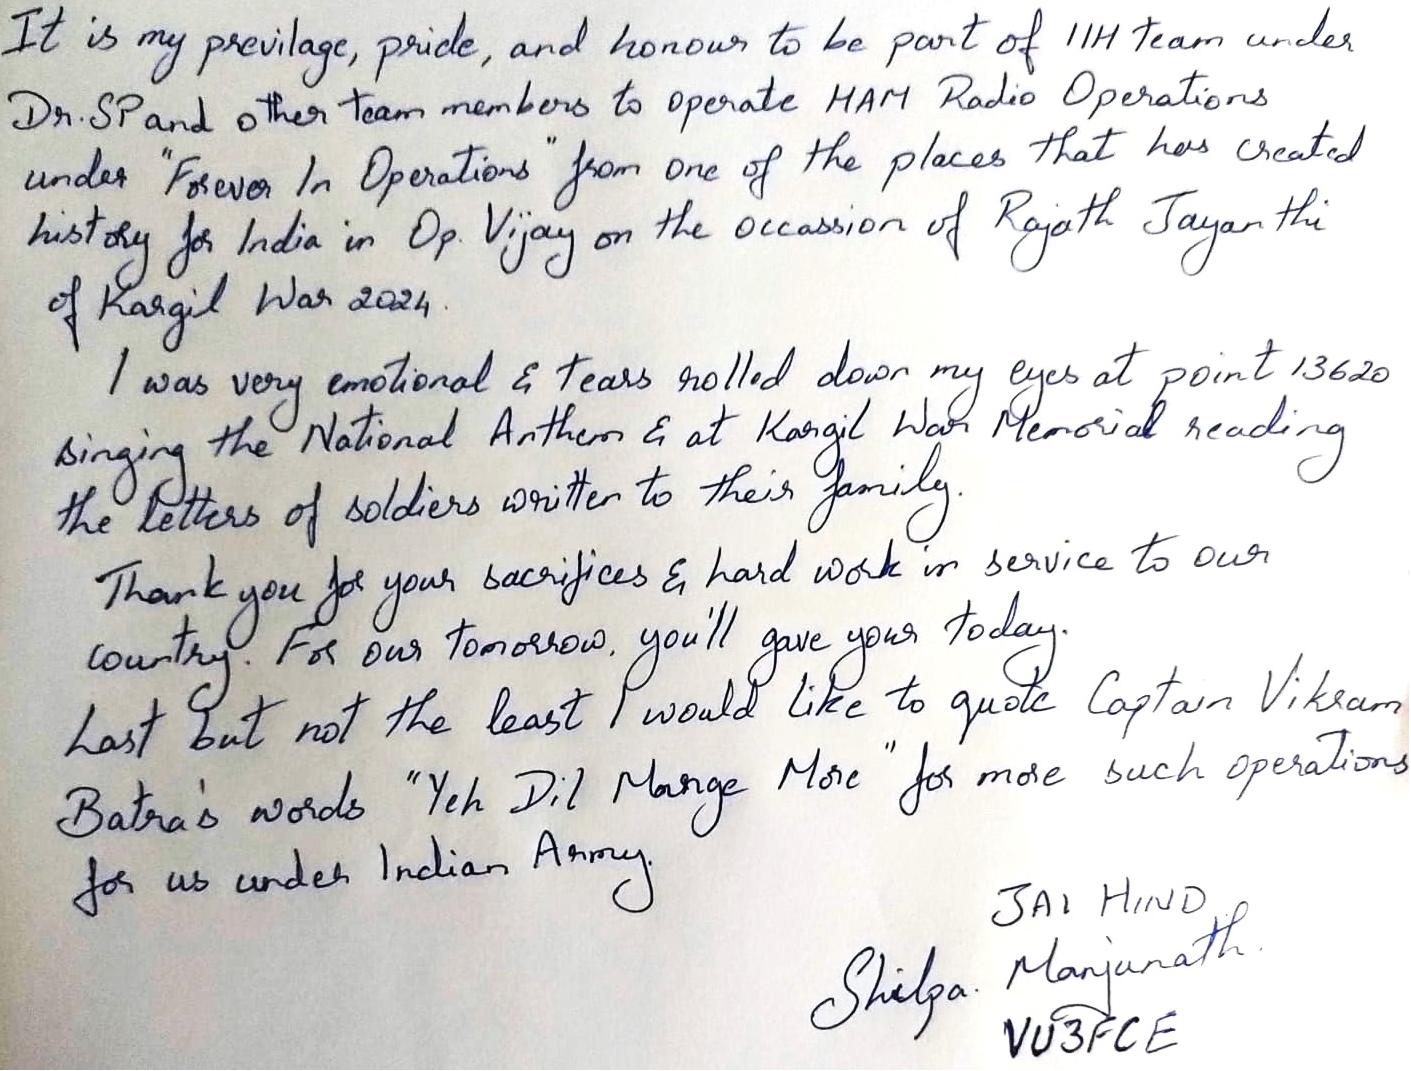 It is my previlage, pride, and honour to be part of IIH team under
Dr. SP and other team members to operate HAM Radio Operations
under "Forever In Operations" from one of the places that has created
history for India in Op. Vijay on the occassion of Rajath Jayanthi
of Kargil War 2024.
I was very emotional & tears rolled down my eyes at point 13620
singing the National Anthem & at Kargil War Memorial reading
the letters of soldiers written to their family.
Thank you for your sacrifices & hard work in service to our
country. For our tomorrow, you'll gave your today.
Last but not the least I would like to quote Captain Vikram
Batra's words "Yeh Dil Mange More" for more such operations
for us under Indian Army.
JAI HIND
Shilpa. Manjunath.
VU3FCE